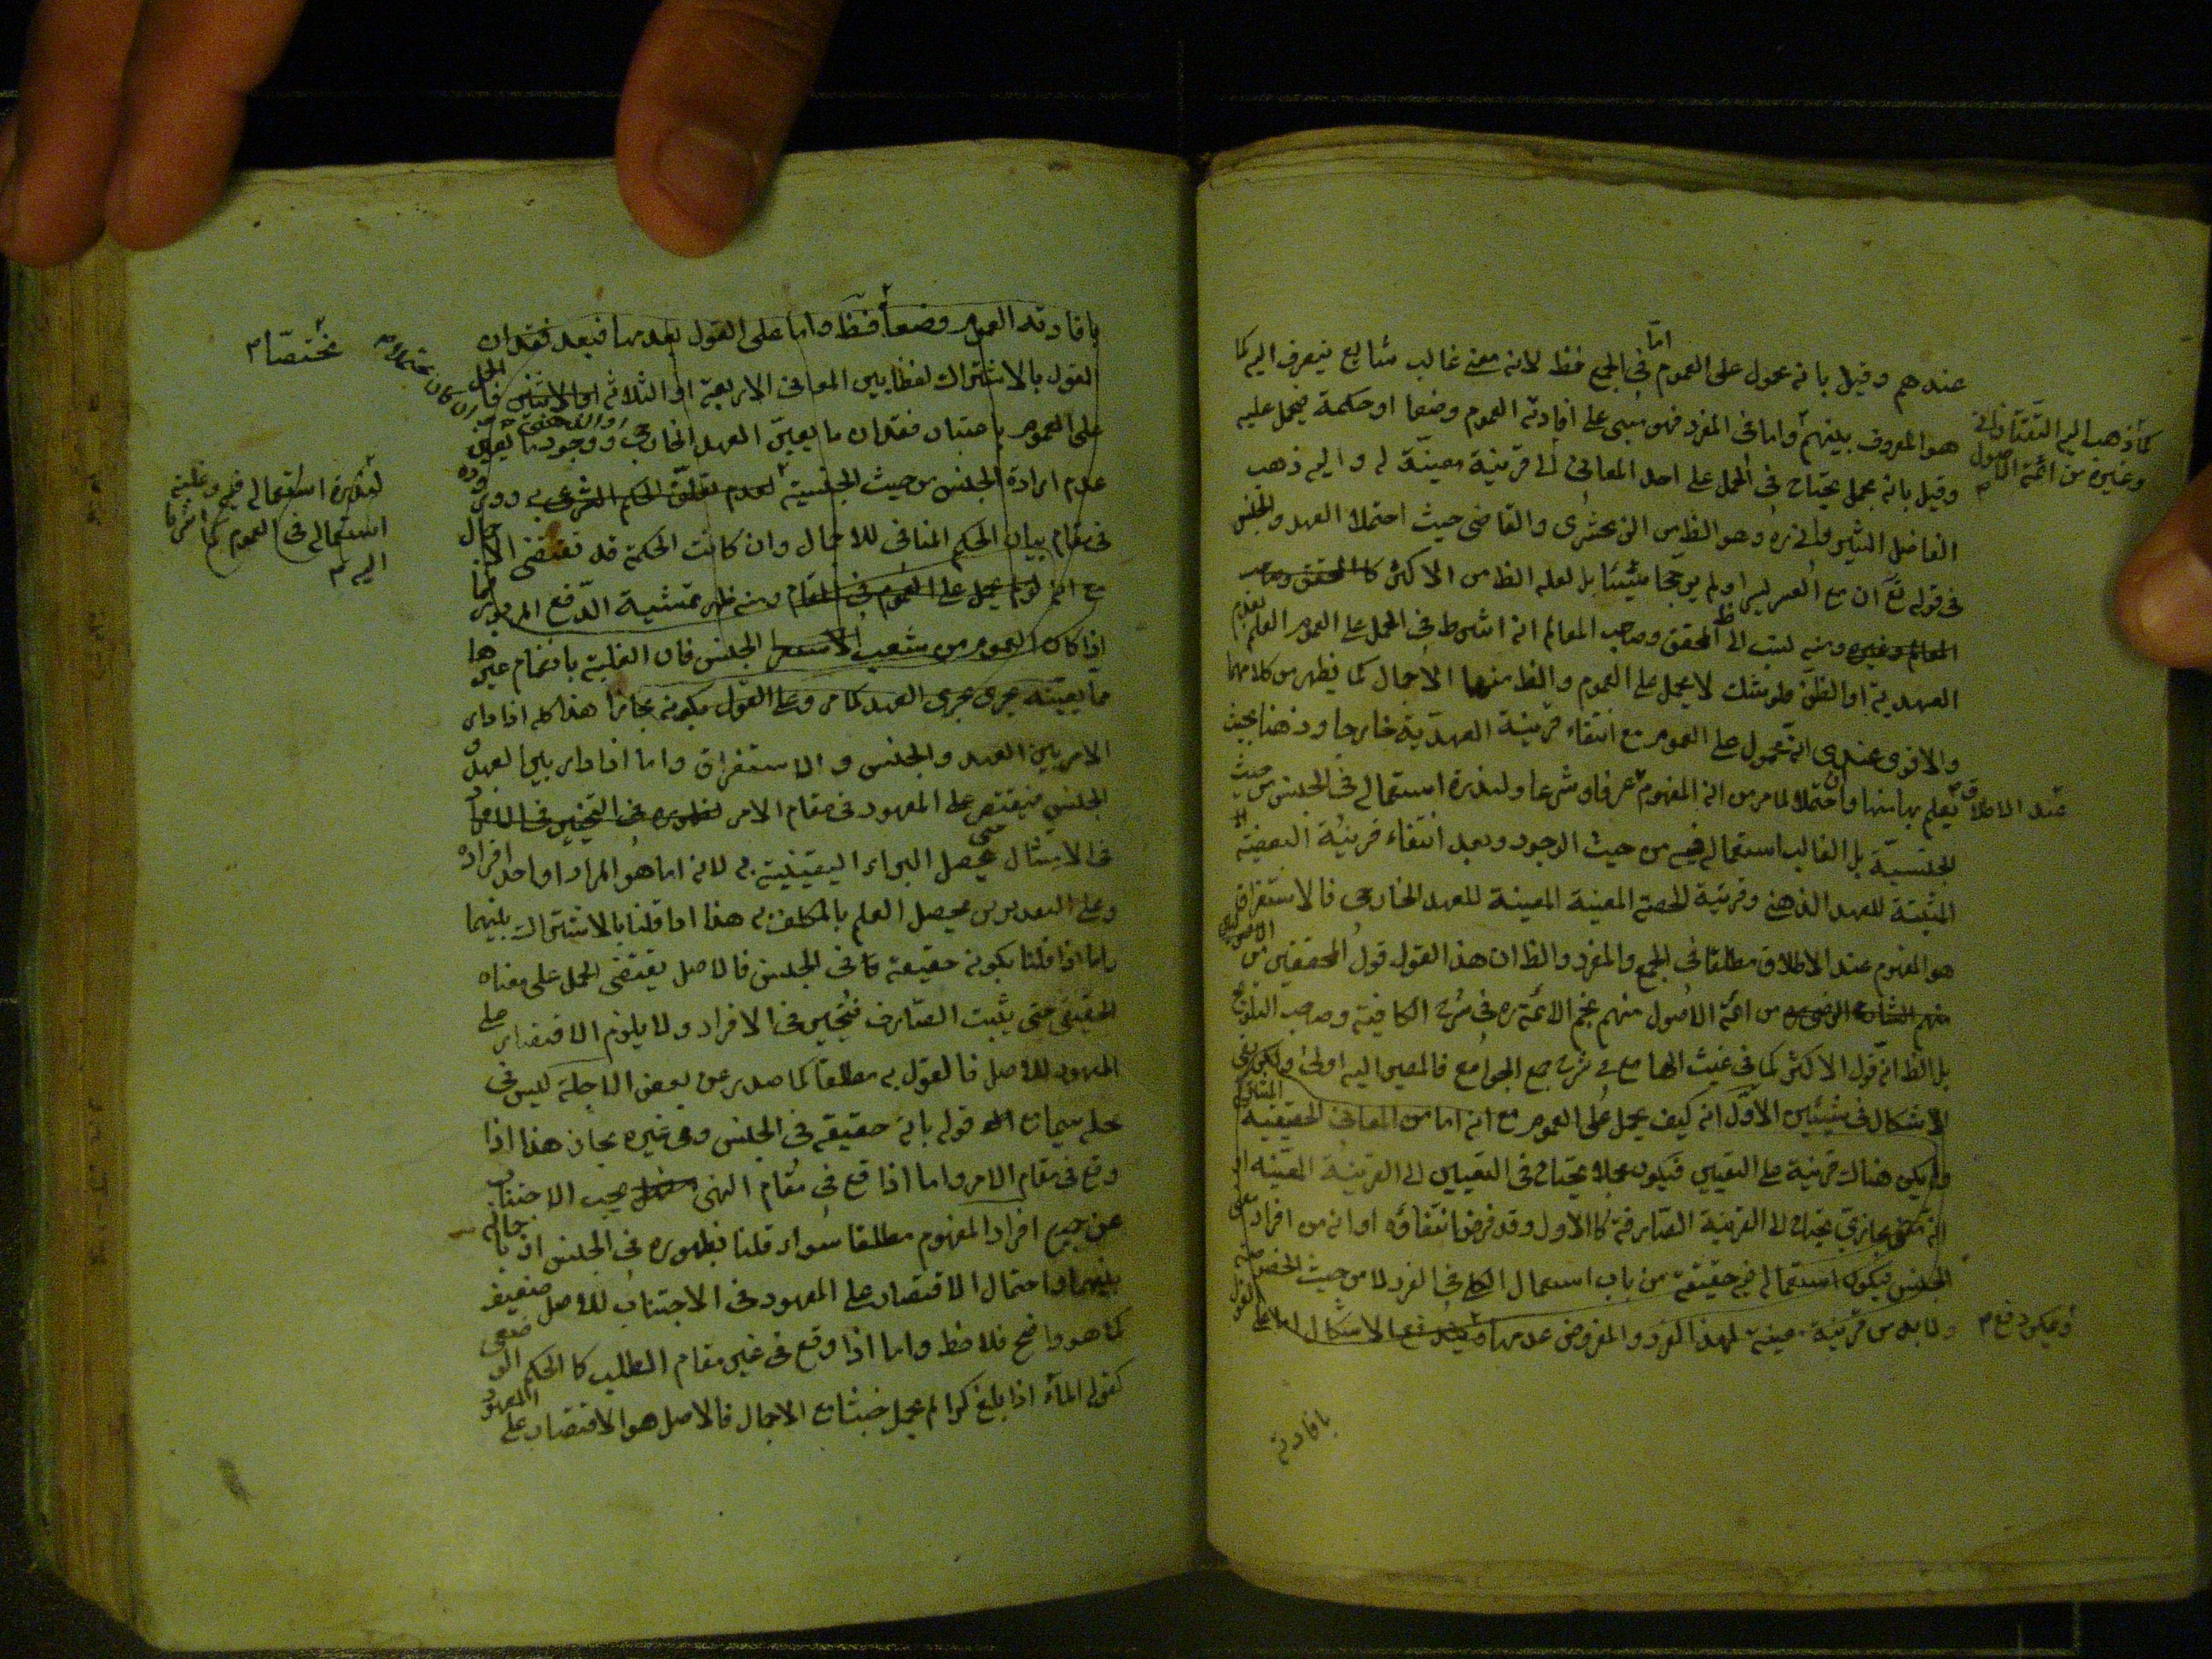 عندهم وقيل بانه محمول على العموم اما في الجمع فظ لانه معنى غالب شايع ينصرف اليه كما
هو المعروف بينهم واما في المفرد فهو مبنى على افادته العموم وضعا او حكمة فيحمل عليه
كما ذهب اليه التفتازاني
وغيره من ائمة الاصول
وقيل بانه مجمل يحتاج في الحمل على احد المعاني الى قرينة معينة له واليه ذهب
الفاضل الشيرواني ره وهو الظ من الزمخشرى والقاضى حيث احتملا العهد والجنس
في قوله تع ان مع العسر يسرا ولم يرجحا شيئا بل لعله الظ من الاكثر كالمحقق وصاحب
المعالم وغيره ومنه نسب الى ظ المحقق وصاحب المعالم انه اشترط في الحمل على العموم العلم بعدم
العهدية او الظن فلو شك لا يحمل على العموم والظ منهما الاجمال كما يظهر من كلامهما
والاقوى عندى انه محمول على العموم مع انتفاء قرينة العهدية خارجا وذهنا بحيث
يعلم بها منها واحتملا لما مر من انه المفهوم عرفا وشرعا ولندرة استعماله في الجنس من حيث
عند الاطلاق
الجنسية بل الغالب استعماله فيه من حيث الوجود وبعد انتفاء قرينة البعضية
المثبتة للعهد الذهني وقرينة الحصة المعينة المعينة للعهد الخارجى فالاستغراق
هو المفهوم عند الاطلاق مطلقا في الجمع والمفرد والظ ان هذا القول قول المحققين من الاصوليين
منهم الشارح الرضى من ائمة الاصول منهم نجم الائمة ره في شرح الكافية وصاحب التلويح
بل الظ انه قول الاكثر كما في غيث الهامع في شرح جمع الجوامع فالمصير اليه اولى ولكن بقى
الاشكال في شيئين الاول انه كيف يحمل على العموم مع انه اما من المعاني الحقيقية
ولم يكن هناك قرينة على التعيين فيكون مجملا يحتاج في التعيين الى القرينة المعينة او
انه معنى مجازي يحتاج الى القرينة الصارفة كالاول وقد فرض انتفاؤه او انه من افراد
الجنس فيكون استعماله فيه حقيقة من باب استعمال الكلي في الفرد لا من حيث الخصوصية
ولا بد من قرينة معينة لهذا الفرد والمفروض عدمها ويمكن دفع الاشكال اما على القول
ويمكن دفع
بافادته
بافادته العموم وضعا فظ واما على القول بعدمها فبعد فقدان
القول بالاشتراك لفظا بين المعاني الاربعة او الثلاثة او الاثنين فالحمل
مختصا
على العموم باعتبار فقدان ما يعين العهد الخارجى ووجود ما يعين
عدم ارادة الجنس من حيث الجنسية لعدم تعلق الحكم الشرعى به ووروده
لندرة استعماله فيه وغلبة
استعماله في العموم كما اشرنا
اليه
في مقام بيان الحكم المنافى للاجمال وان كانت الحكمة قد تقتضى الاجمال
مع انه لو لم يحمل على العموم في المقام ومنه ظهر تمشية الدفع المزبور
اذا كان العموم من شعب الجنس فان الغلبة بانضمام غيرها
مما يعينه يجرى مجرى العهد كما مر وعلى القول بكونه مجازا هذا كله اذا دار
الامر بين العهد والجنس والاستغراق واما اذا دار بين العهد و
الجنس فيقتصر على المعهود في مقام الامر
في الامتثال حتى يحصل البراءة اليقينية به لانه اما هو المراد او احد افراده
وعلى التقديرين يحصل العلم بالمكلف به هذا اذا قلنا بالاشتراك بينهما
واما اذا قلنا بكونه حقيقة في الجنس فالاصل يقتضى الحمل على معناه
الحقيقى حتى يثبت الصارف فيتخير في الافراد ولا يلزم الاقتصار على
المعهود للاصل فالقول به مطلقا كما صدر عن بعض الاجلة ليس في
محله سيما مع قوله بانه حقيقة في الجنس وفي غيره مجاز هذا اذا
وقع في مقام الامر واما اذا وقع في مقام النهى يجب الاجتناب
عن جميع افراد المفهوم مطلقا سواء قلنا بظهوره في الجنس او باجماله
بينهما واحتمال الاقتصار على المعهود في الاجتناب للاصل ضعيف
كما هو واضح فلاحظ واما اذا وقع في غير مقام الطلب كالحكم الوضعى
كقوله الماء اذا بلغ كرا لم يحمل خبثا مع الاجمال فالاصل هو الاقتصار على المعهود